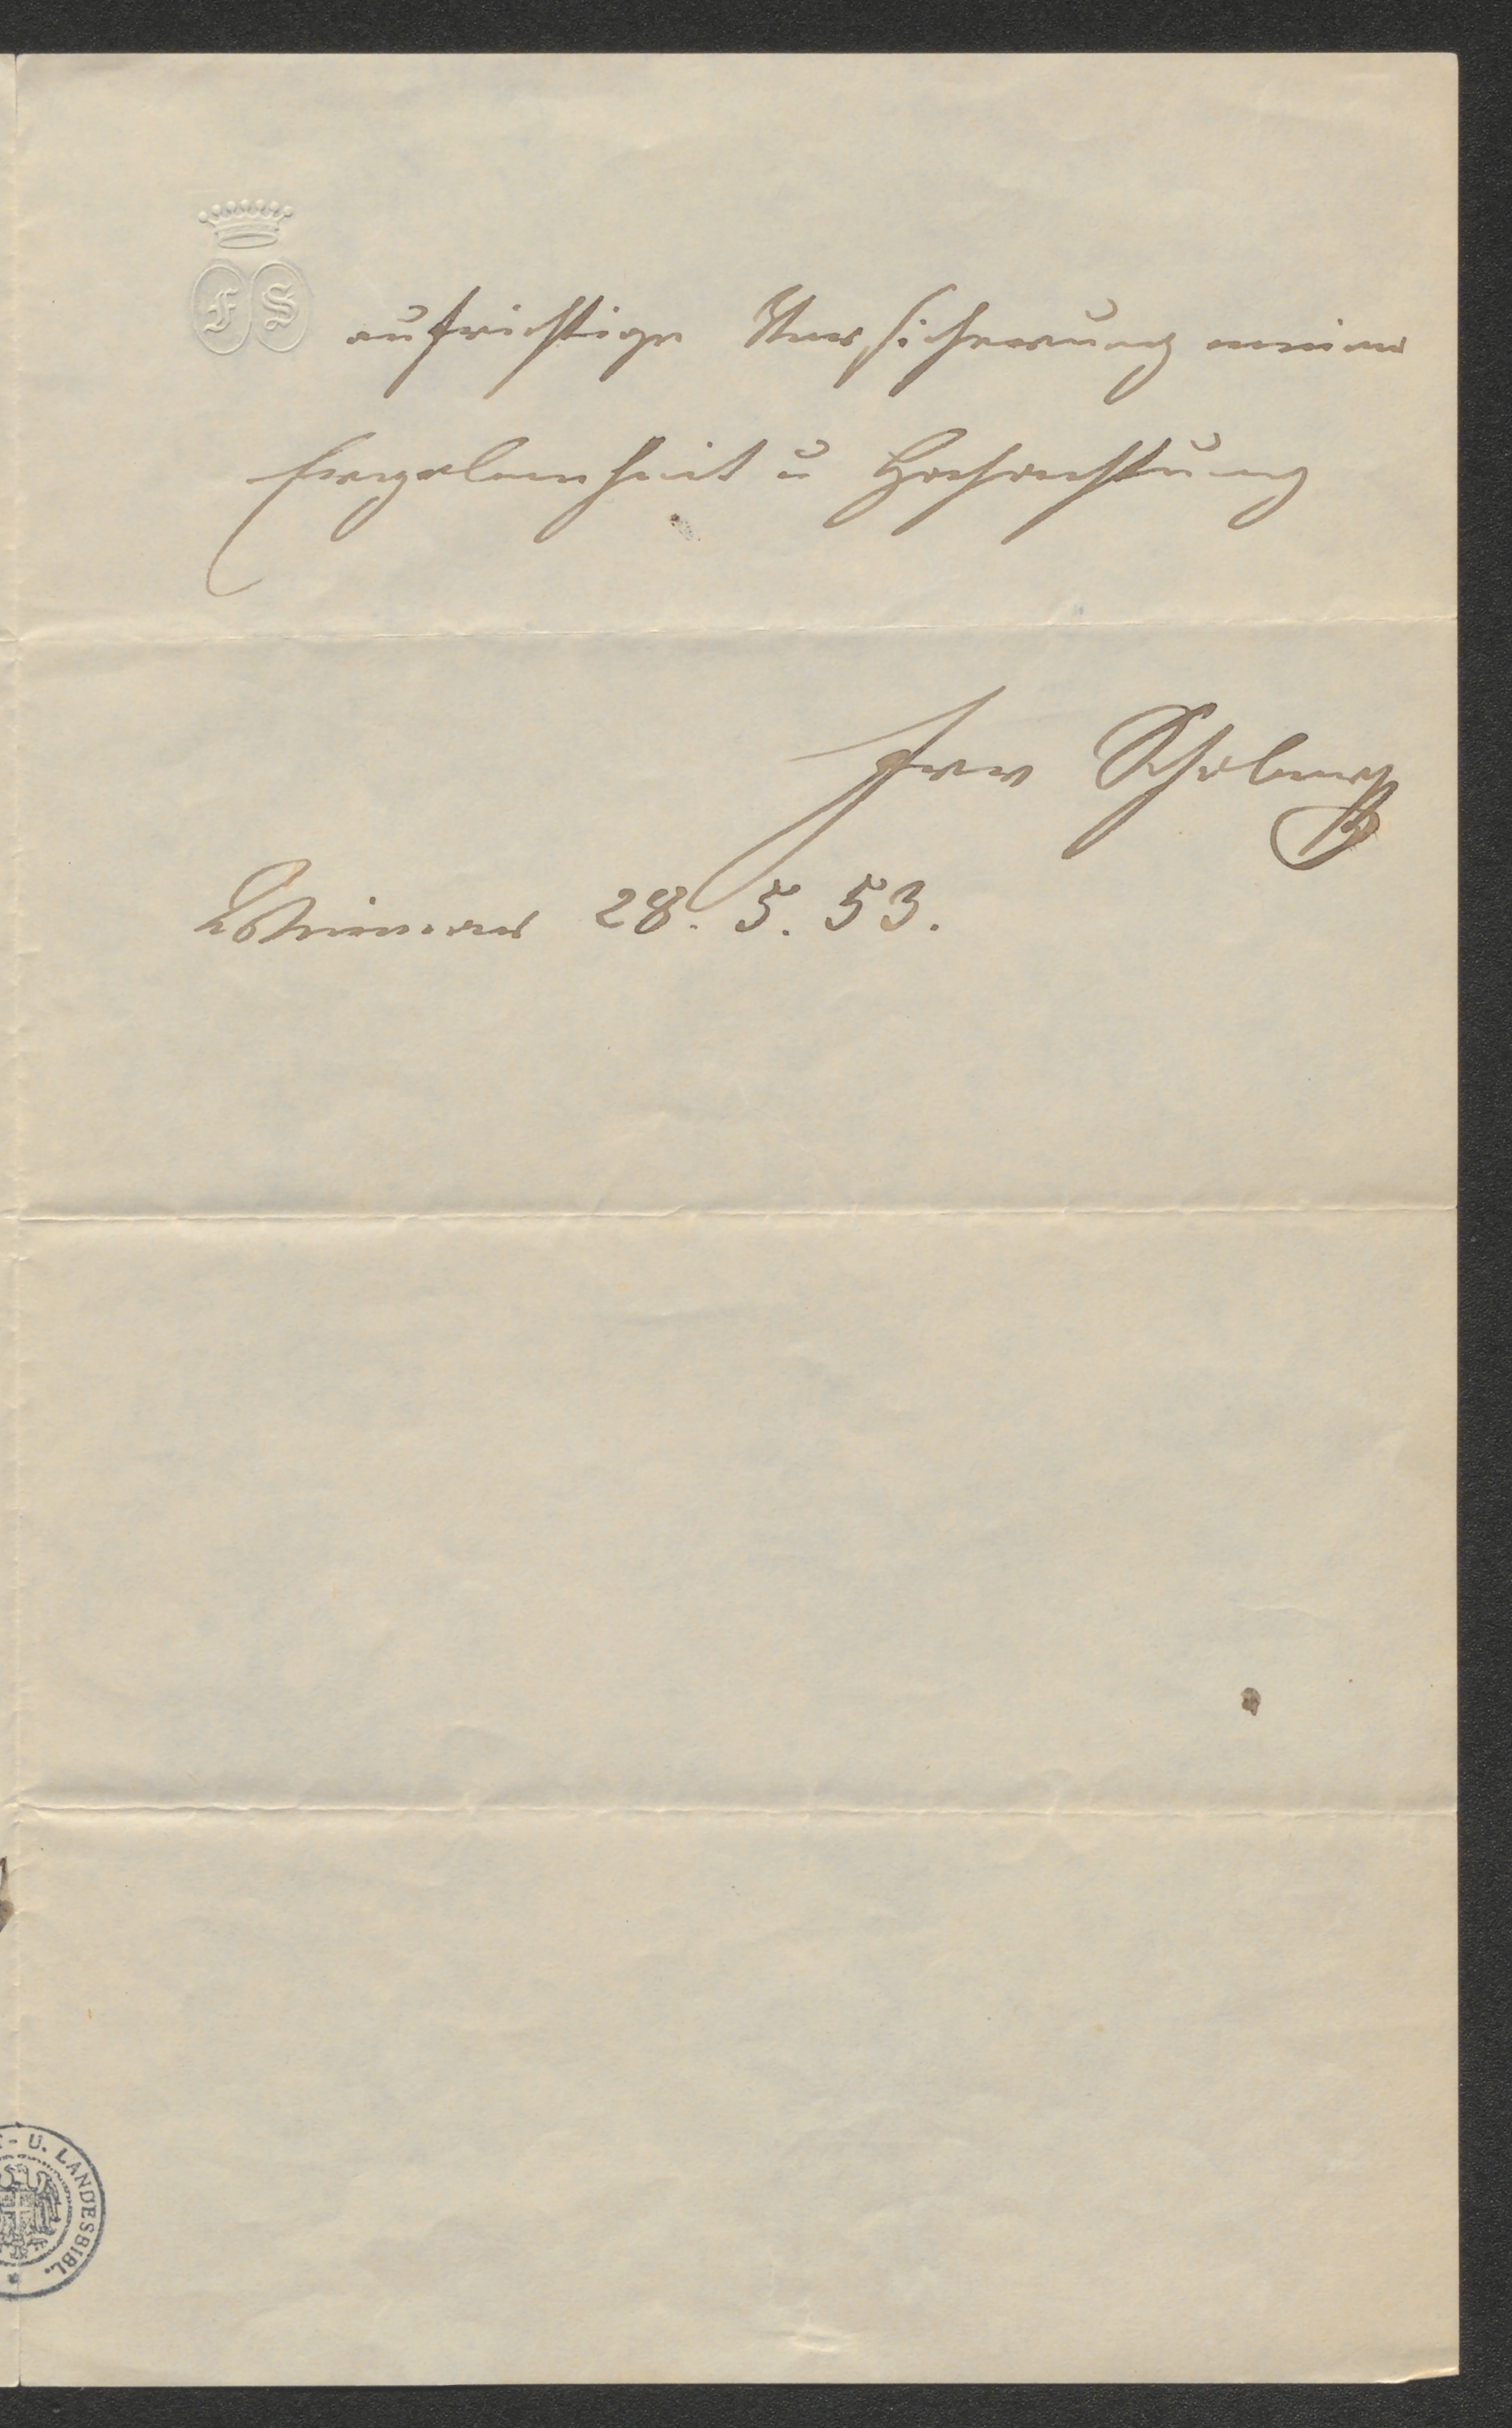 F S
aufrichtige Versicherung meiner
Ergebenheit u Hochachtung
Frv Schober
Weimar 28. 5. 53.
U. LANDESBIBL.